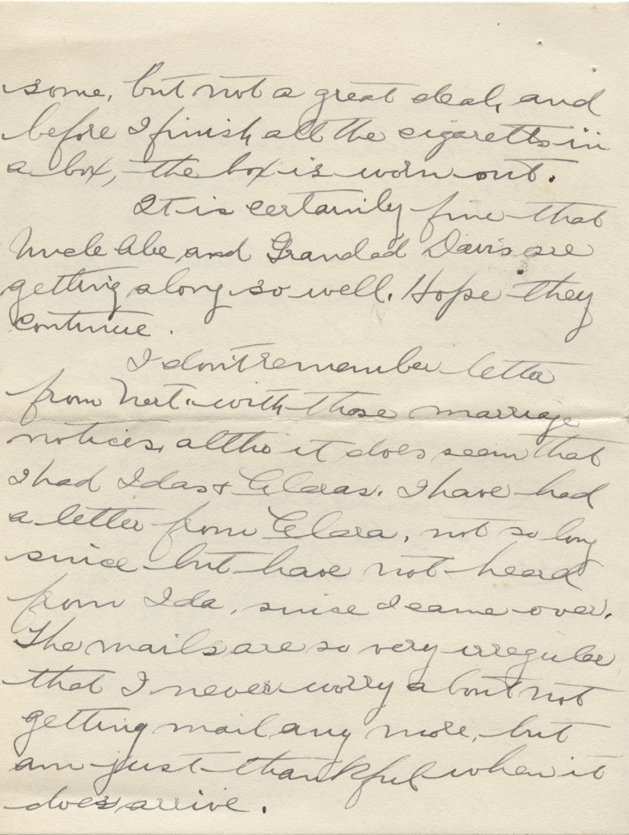 some, but not a great deal, and
before I finish all the cigaretts in
a box, the box is worn out.
It is certainly fine that
Uncle Abe and Grandad Davis are
getting along so well. Hope they
continue.
I don't remember letter
from Nert. with those marriage
notices, altho it does seem that
I had Idas & Claras. I have had
a letter from Clara, not so long
since but have not heard
from Ida, since I came over.
The mails are so very irregular
that I never worry about not
getting mail any more, but
am just thankful when it
does arrive.